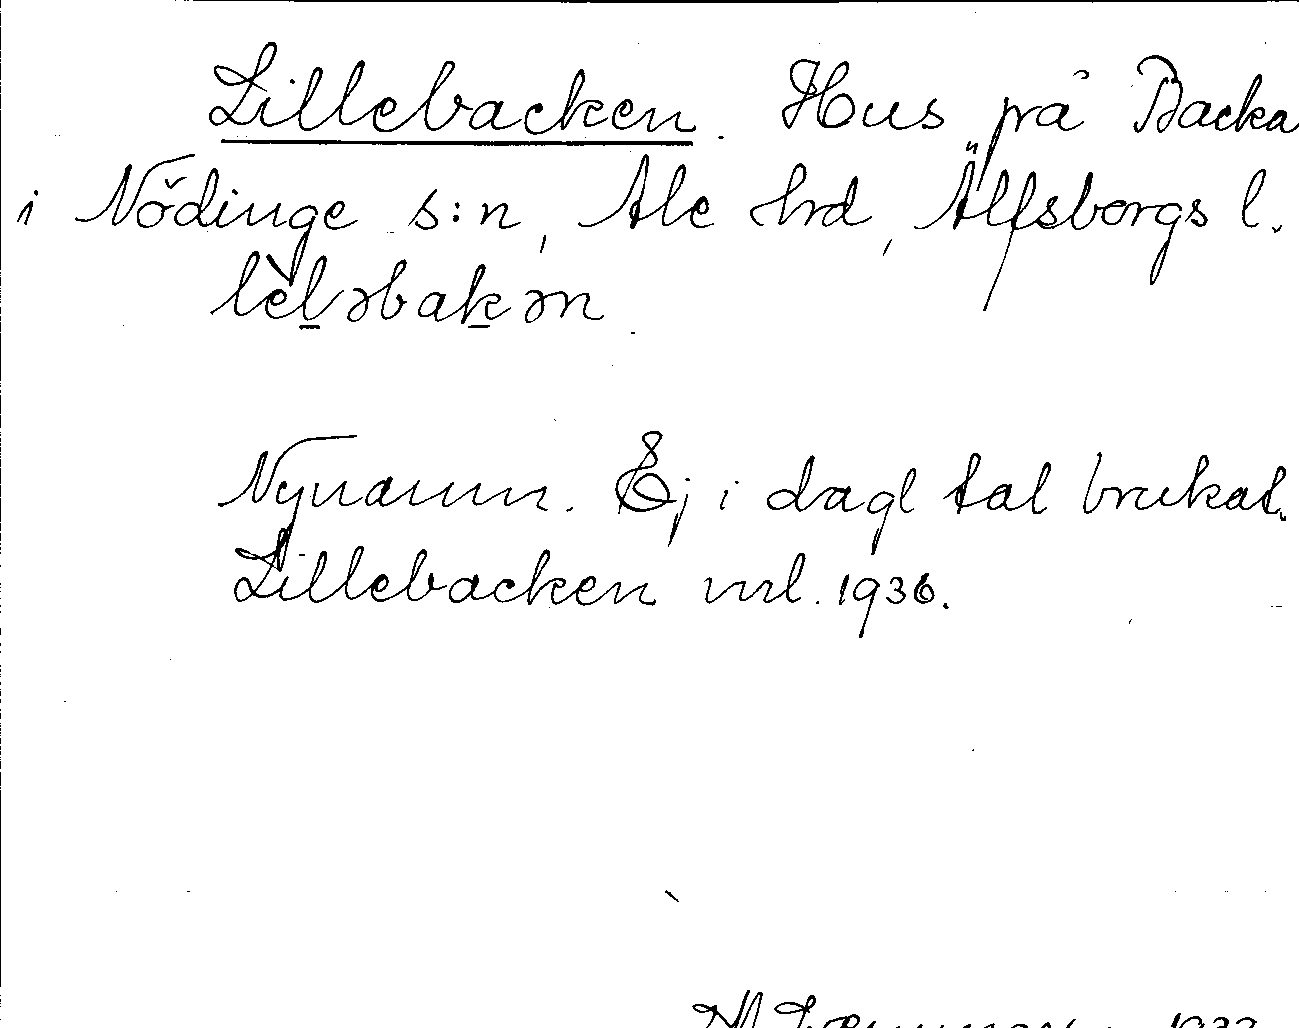 Lillebacken. Hus på Backa
i Nödinge s:n, Ale hrd, Älfsborgs l.
lèl̲əbak̲ən
Nynamn. Ej i dagl tal brukat.
Lillebacken ml. 1936.